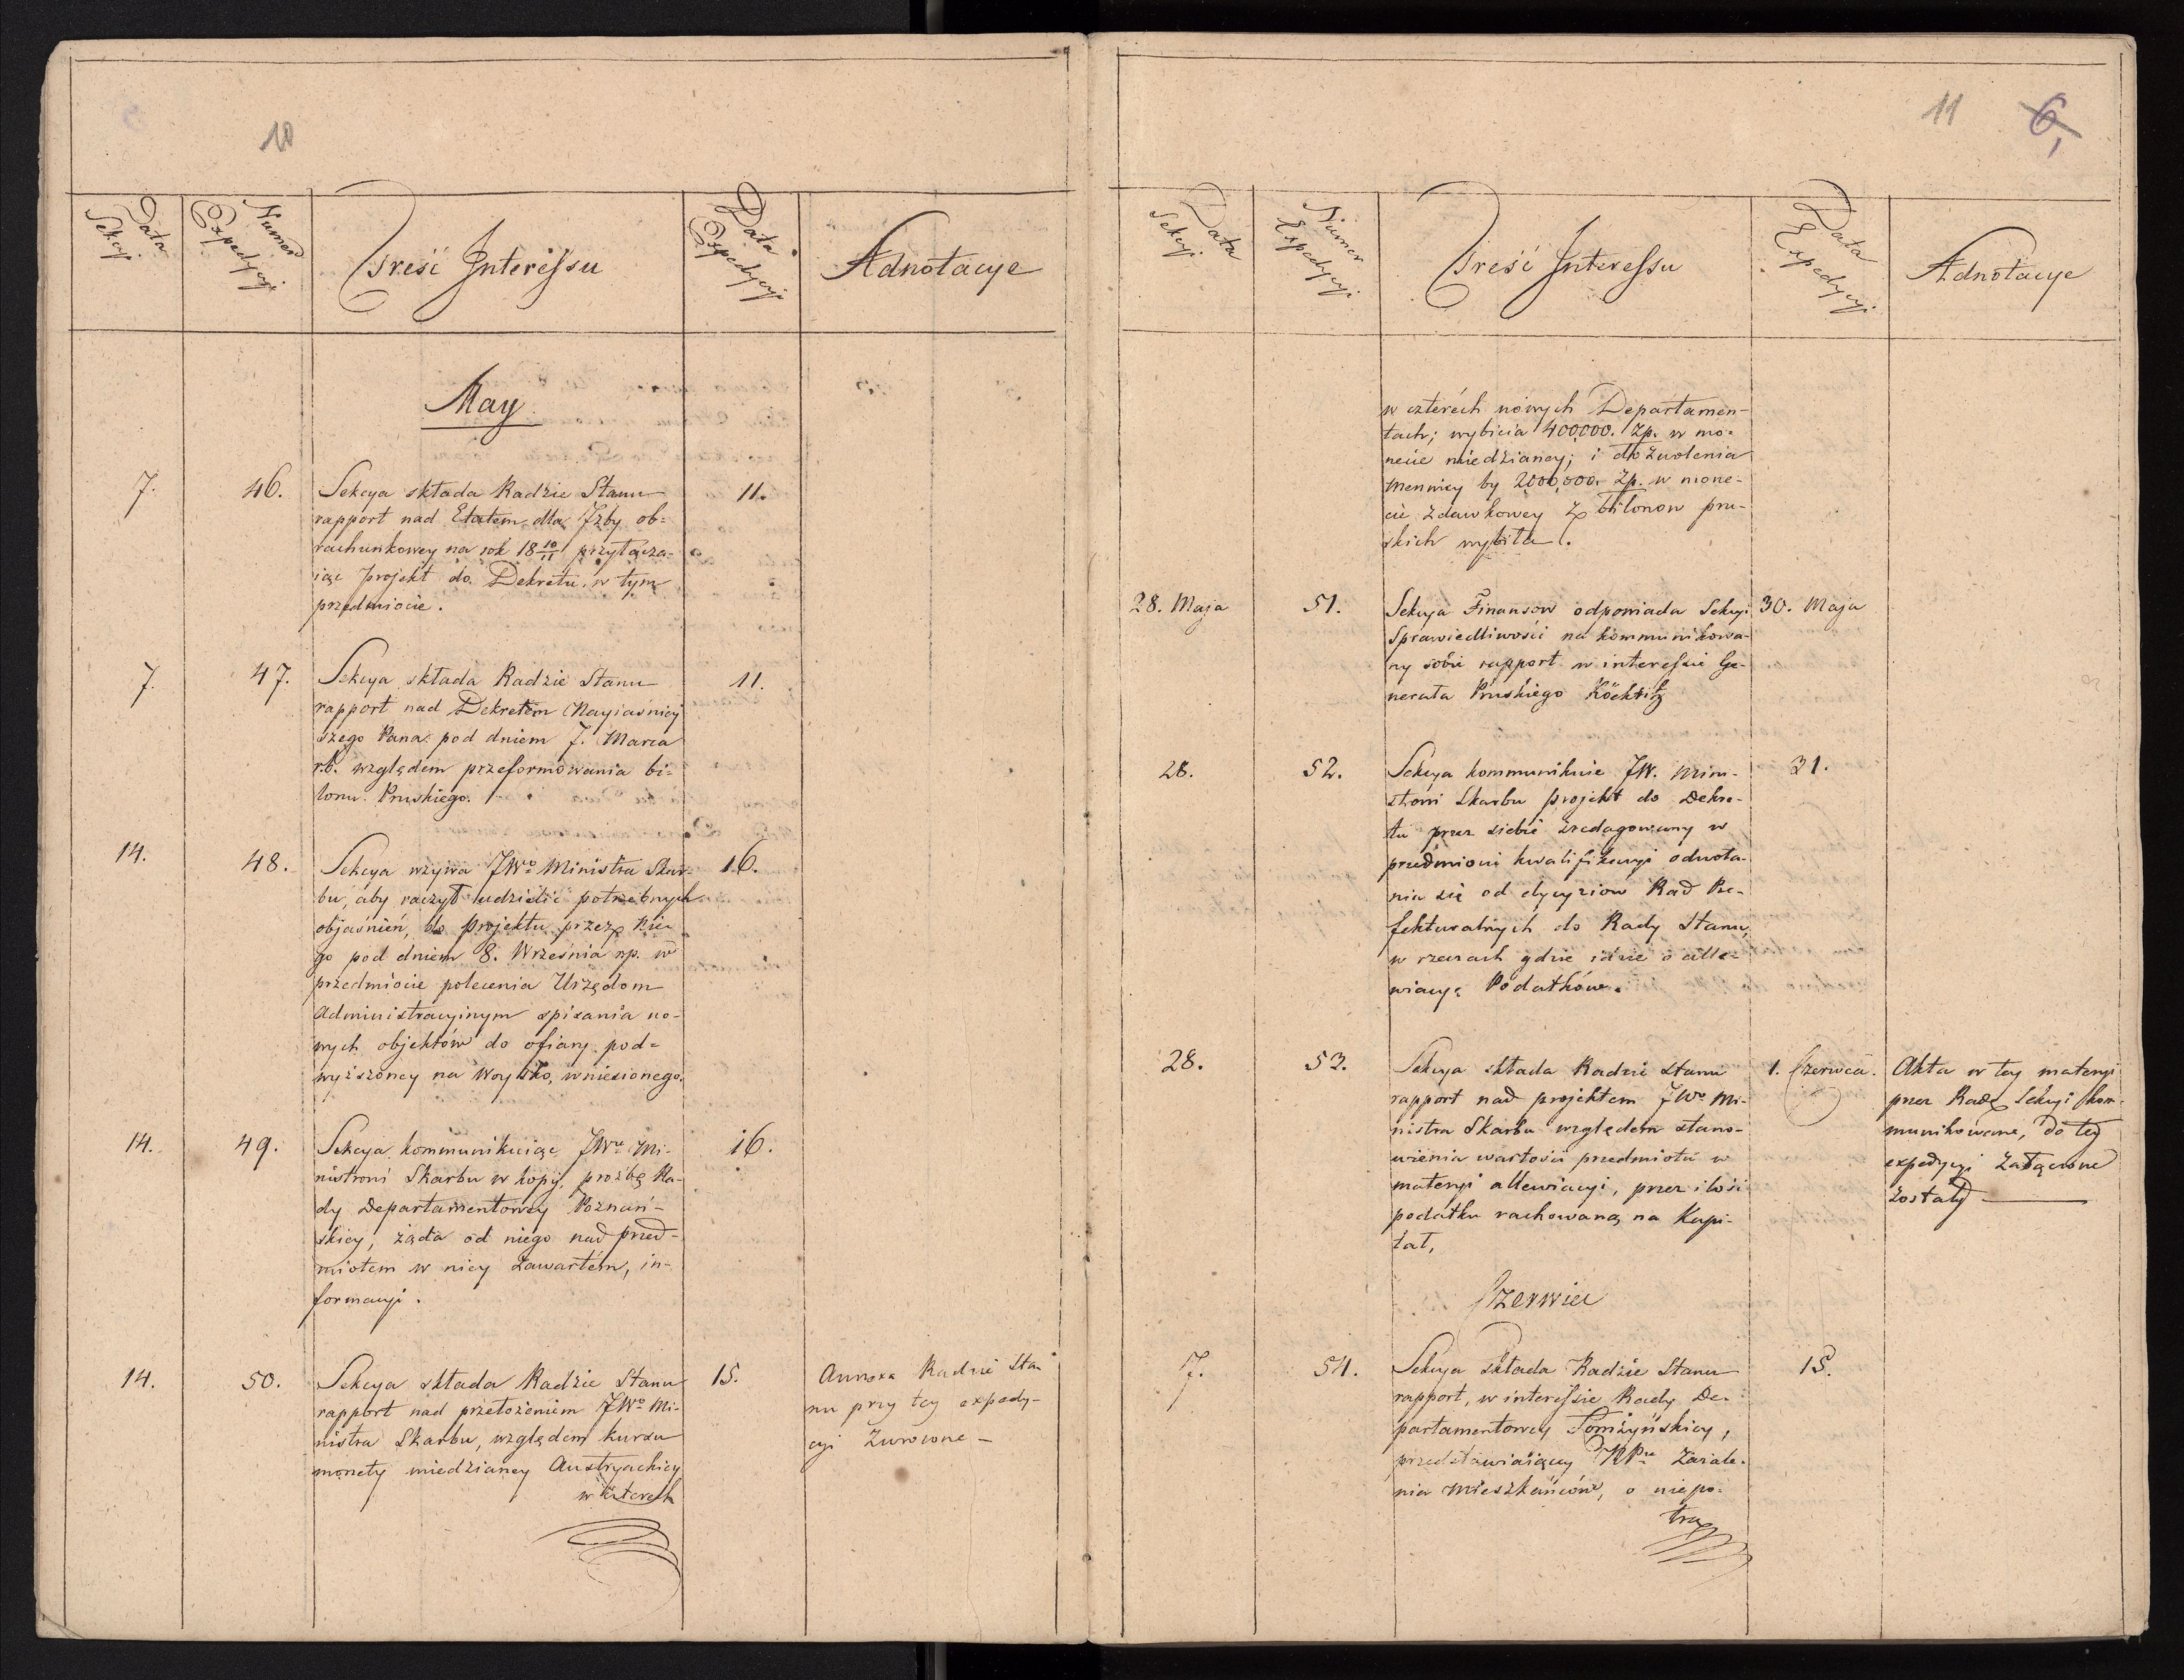 10
Data Sekcyi
Numer Expedycyi
Treść Interessu
Data Expedycyi
Adnotacye
May
7.
46.
Sekcya składa Radzie Stanu
11.
rapport nad Etatem dla Izby ob=
rachunkowey na rok 18 10/11 przyłącza=
iąc projekt do Dekretu w tym
przedmiocie.
7.
47.
Sekcya składa Radzie Stanu
11.
rapport nad Dekretem Nayiaśniey
szego Pana pod dniem 7. Marca
r.b. względem przeformowania bi=
lonu Pruskiego.
14.
48.
Sekcya wzywa JWo Ministra Skar-
16.
bu, aby raczył udzielić potrzebnych
objaśnień, do projektu przez Nie
go pod dniem 8. Września rp. w
przedmiocie polecenia Urzędom
Administracyinym spisania no-
wych objektów do ofiary pod=
wyższoney na Woysko, wniesionego.
14.
49.
Sekcya kommunikuiąc JWu Mi-
16.
nistrowi Skarbu w kopij, proźbę Ra-
dy Departamentowey Poznań-
skiey, żąda od niego nad przed-
miotem w niey zawartém, in-
formacyi.
14.
50.
Sekcya składa Radzie Stanu
15.
Annexa Radzie Sta-
rapport nad przełożeniem JWo Mi-
nu przy tey expedy-
nistra Skarbu, względem kursu
cyi zwrócone —
monety miedzianey Austryackiey
w czterech
11
6,
Data Sekcyi
Numer Expedycyi
Treść Interessu
Data Expedycyi
Adnotacye
w czterech nowych Departamen-
tach; wybicia 400,000. Zp. w mo=
necie miedzianey; i dozwolenia
Mennicy by 2000,000. Zp. w mone-
cie zdawkowey z bilonow pru-
skich wybiła.
28. Maja
51.
Sekcya Finansow odpowiada Sekcyi
30. Maja
Sprawiedliwości na kommunikowa-
ny sobie rapport w interessie Ge-
nerała Pruskiego Köckritz
28.
52.
Sekcya kommunikuie JW. Mini-
31.
strowi Skarbu projekt do Dekre-
tu przez siebie zredagowany w
przedmiocie kwalifikacyi odwoła-
nia się od decyziow Rad Pre-
fekturalnych do Rady Stanu,
w rzeczach gdzie idzie o alle=
wiacyę Podatków.
28.
53.
Sekcya składa Radzie Stanu
1. Czerwca.
Akta w tey materyi
rapport nad projektem JWo Mi-
przez Radę Sekcyi kom-
nistra Skarbu względem stano-
munikowane, do tey
wienia wartości przedmiotu w
expedycyi załączone
materyi allewiacyi, przez ilość
zostały —
podatku rachowaną na Kapi-
tał,
Czerwiec
7.
54.
Sekcya składa Radzie Stanu
15.
rapport, w interessie Rady De-
partamentowey Łomżyńskiey,
przedstawiaiącey zażale-
nia Mieszkańców, o niepo-
trz